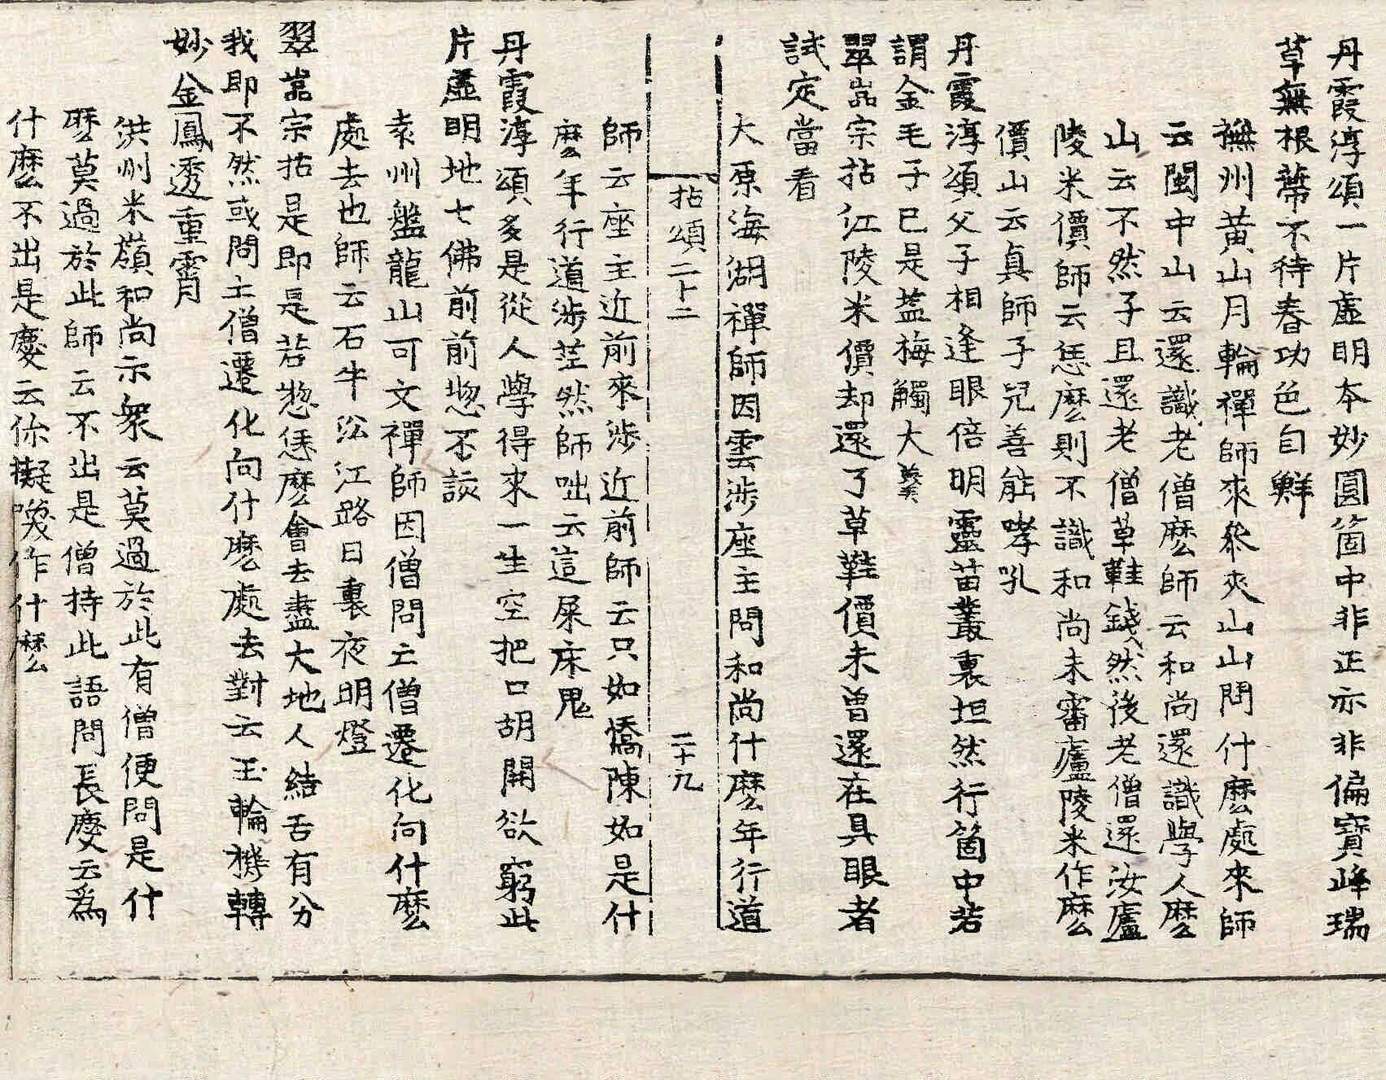 丹霞淳頌一片虛明本妙圓箇中非正亦非偏寶峰瑞
草無根蔕不待春功色自鮮
撫州黃山月輪禪師來參夾山問什麽處來師
云閩中山云還識老僧麽師云和尚還識學人麽
山云不然子且還老僧草鞋錢然後老僧還汝廬
陵米價師云恁麽則不識和尚未審廬陵米作麽
價山云真師子兒善能哮吼
丹霞淳頌父子相逢眼倍明靈苗叢裏坦然行箇中若
謂金毛子已是盐梅觸大羹
翠嵓宗拈江陵米價却還了草鞋價未曾還在具眼者
試定當看
大原海湖禪師因雲涉座主問和尚什麽年行道
拈頌二十二 二十九
師云座主近前來涉近前師云只如憍陳如是什
麽年行道涉茫然師咄云這屎床鬼
丹霞淳頌多是從人學得來一生空把口胡開欲窮此
片虛明地七佛前前惣不該
袁州盤龍山可文禪師因僧問亡僧遷化向什麽
處去也師云石牛㳂江路日裏夜明燈
翠嵓宗拈是即是若惣恁麽會去盡大地人結舌有分
我即不然或問亡僧遷化向什麽處去對云玉輪機轉
妙金鳳透重霄
洪州米嶺和尚示衆云莫過於此有僧便問是什
麽莫過於此師云不出是僧持此語問長慶云爲
什麽不出是慶云你擬喚作什麽